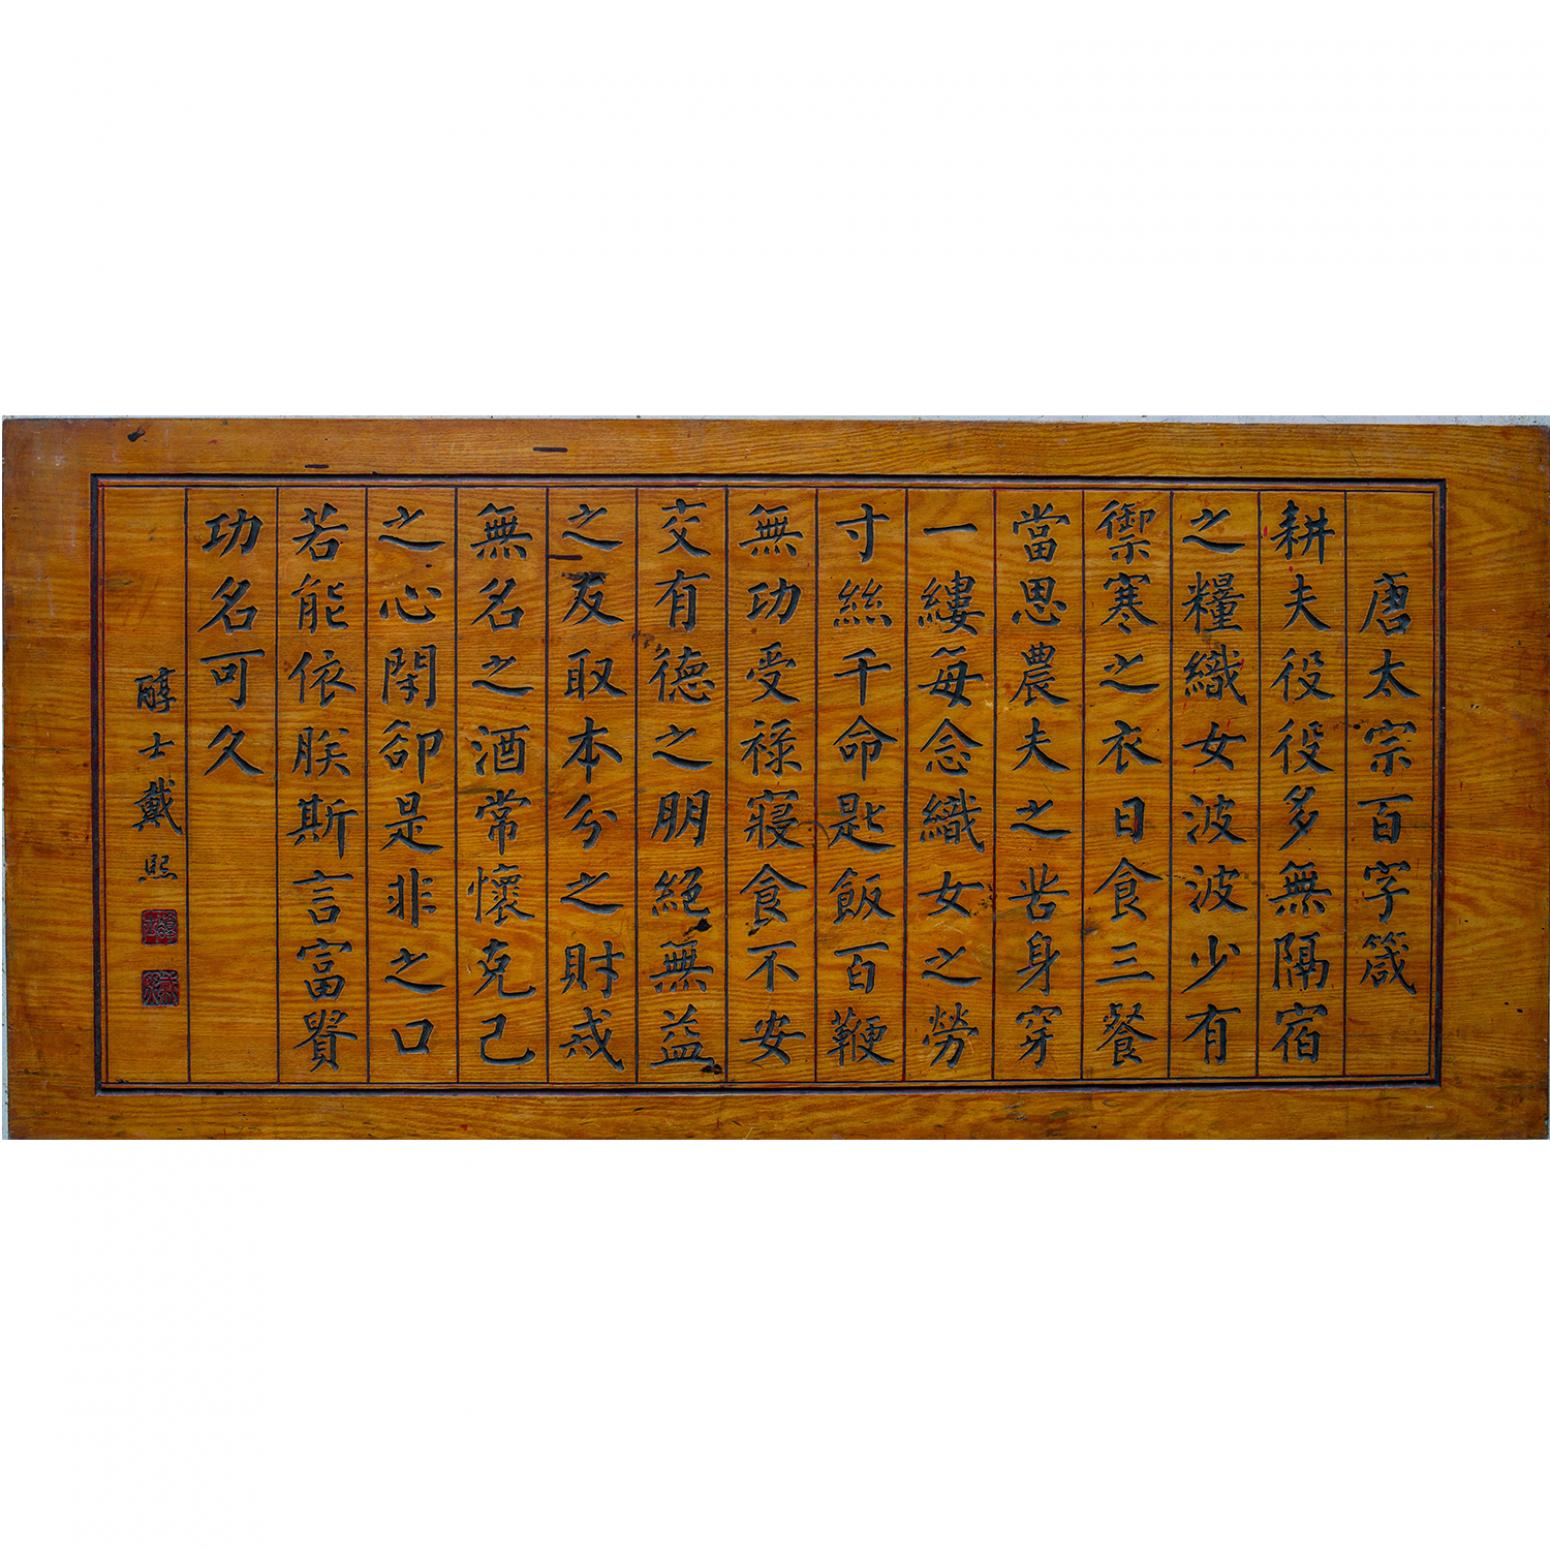 唐太宗百字箴
耕夫役役多無隔宿
之糧織女波波少有
禦寒之衣日食三餐
當思農夫之苦身穿
一縷每念織女之勞
寸絲千命匙飯百鞭
無功受祿寢食不安
交有德之朋絕無益
之友取本分之財戒
無名之酒常懷克己
之心閉卻是非之口
若能依朕斯言富貴
功名可久
醇士戴熙